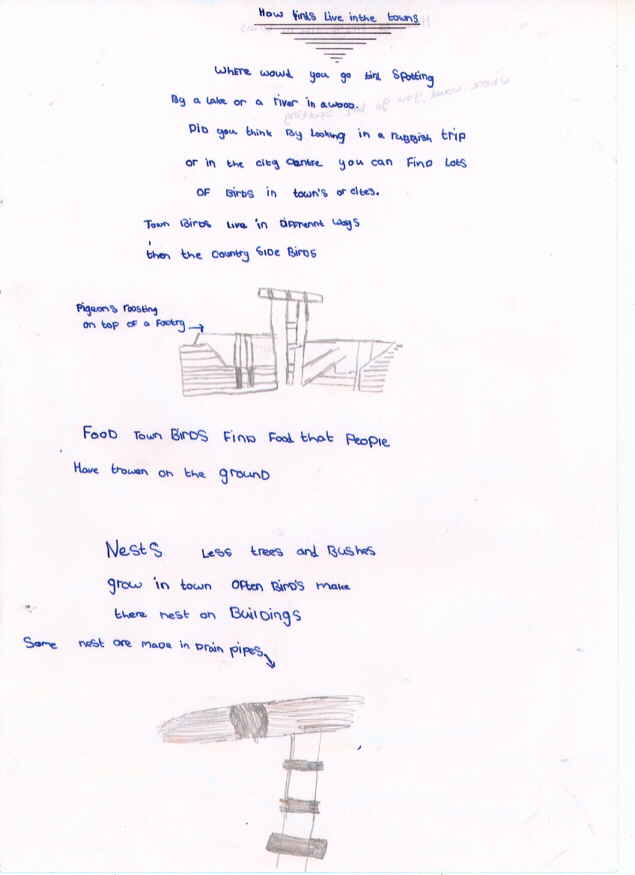 How birds Live in the towns
Where would you go bird Spotting
By a lake or a river in a wood.
Did you think By Looking in a rubbish trip
or in the citey centre you can Find Lots
OF Birds in town's or cites.
Town Birds Live in Diffrennt Ways
then the country side Birds
Pigeon's roosting
on top of a Footry
Food Town Birds Find Food that People
Have trowen on the ground
Nests Less trees and Bushes
grow in town Often Bird's make
there nest on Buildings
Some nest are made in Drain pipes